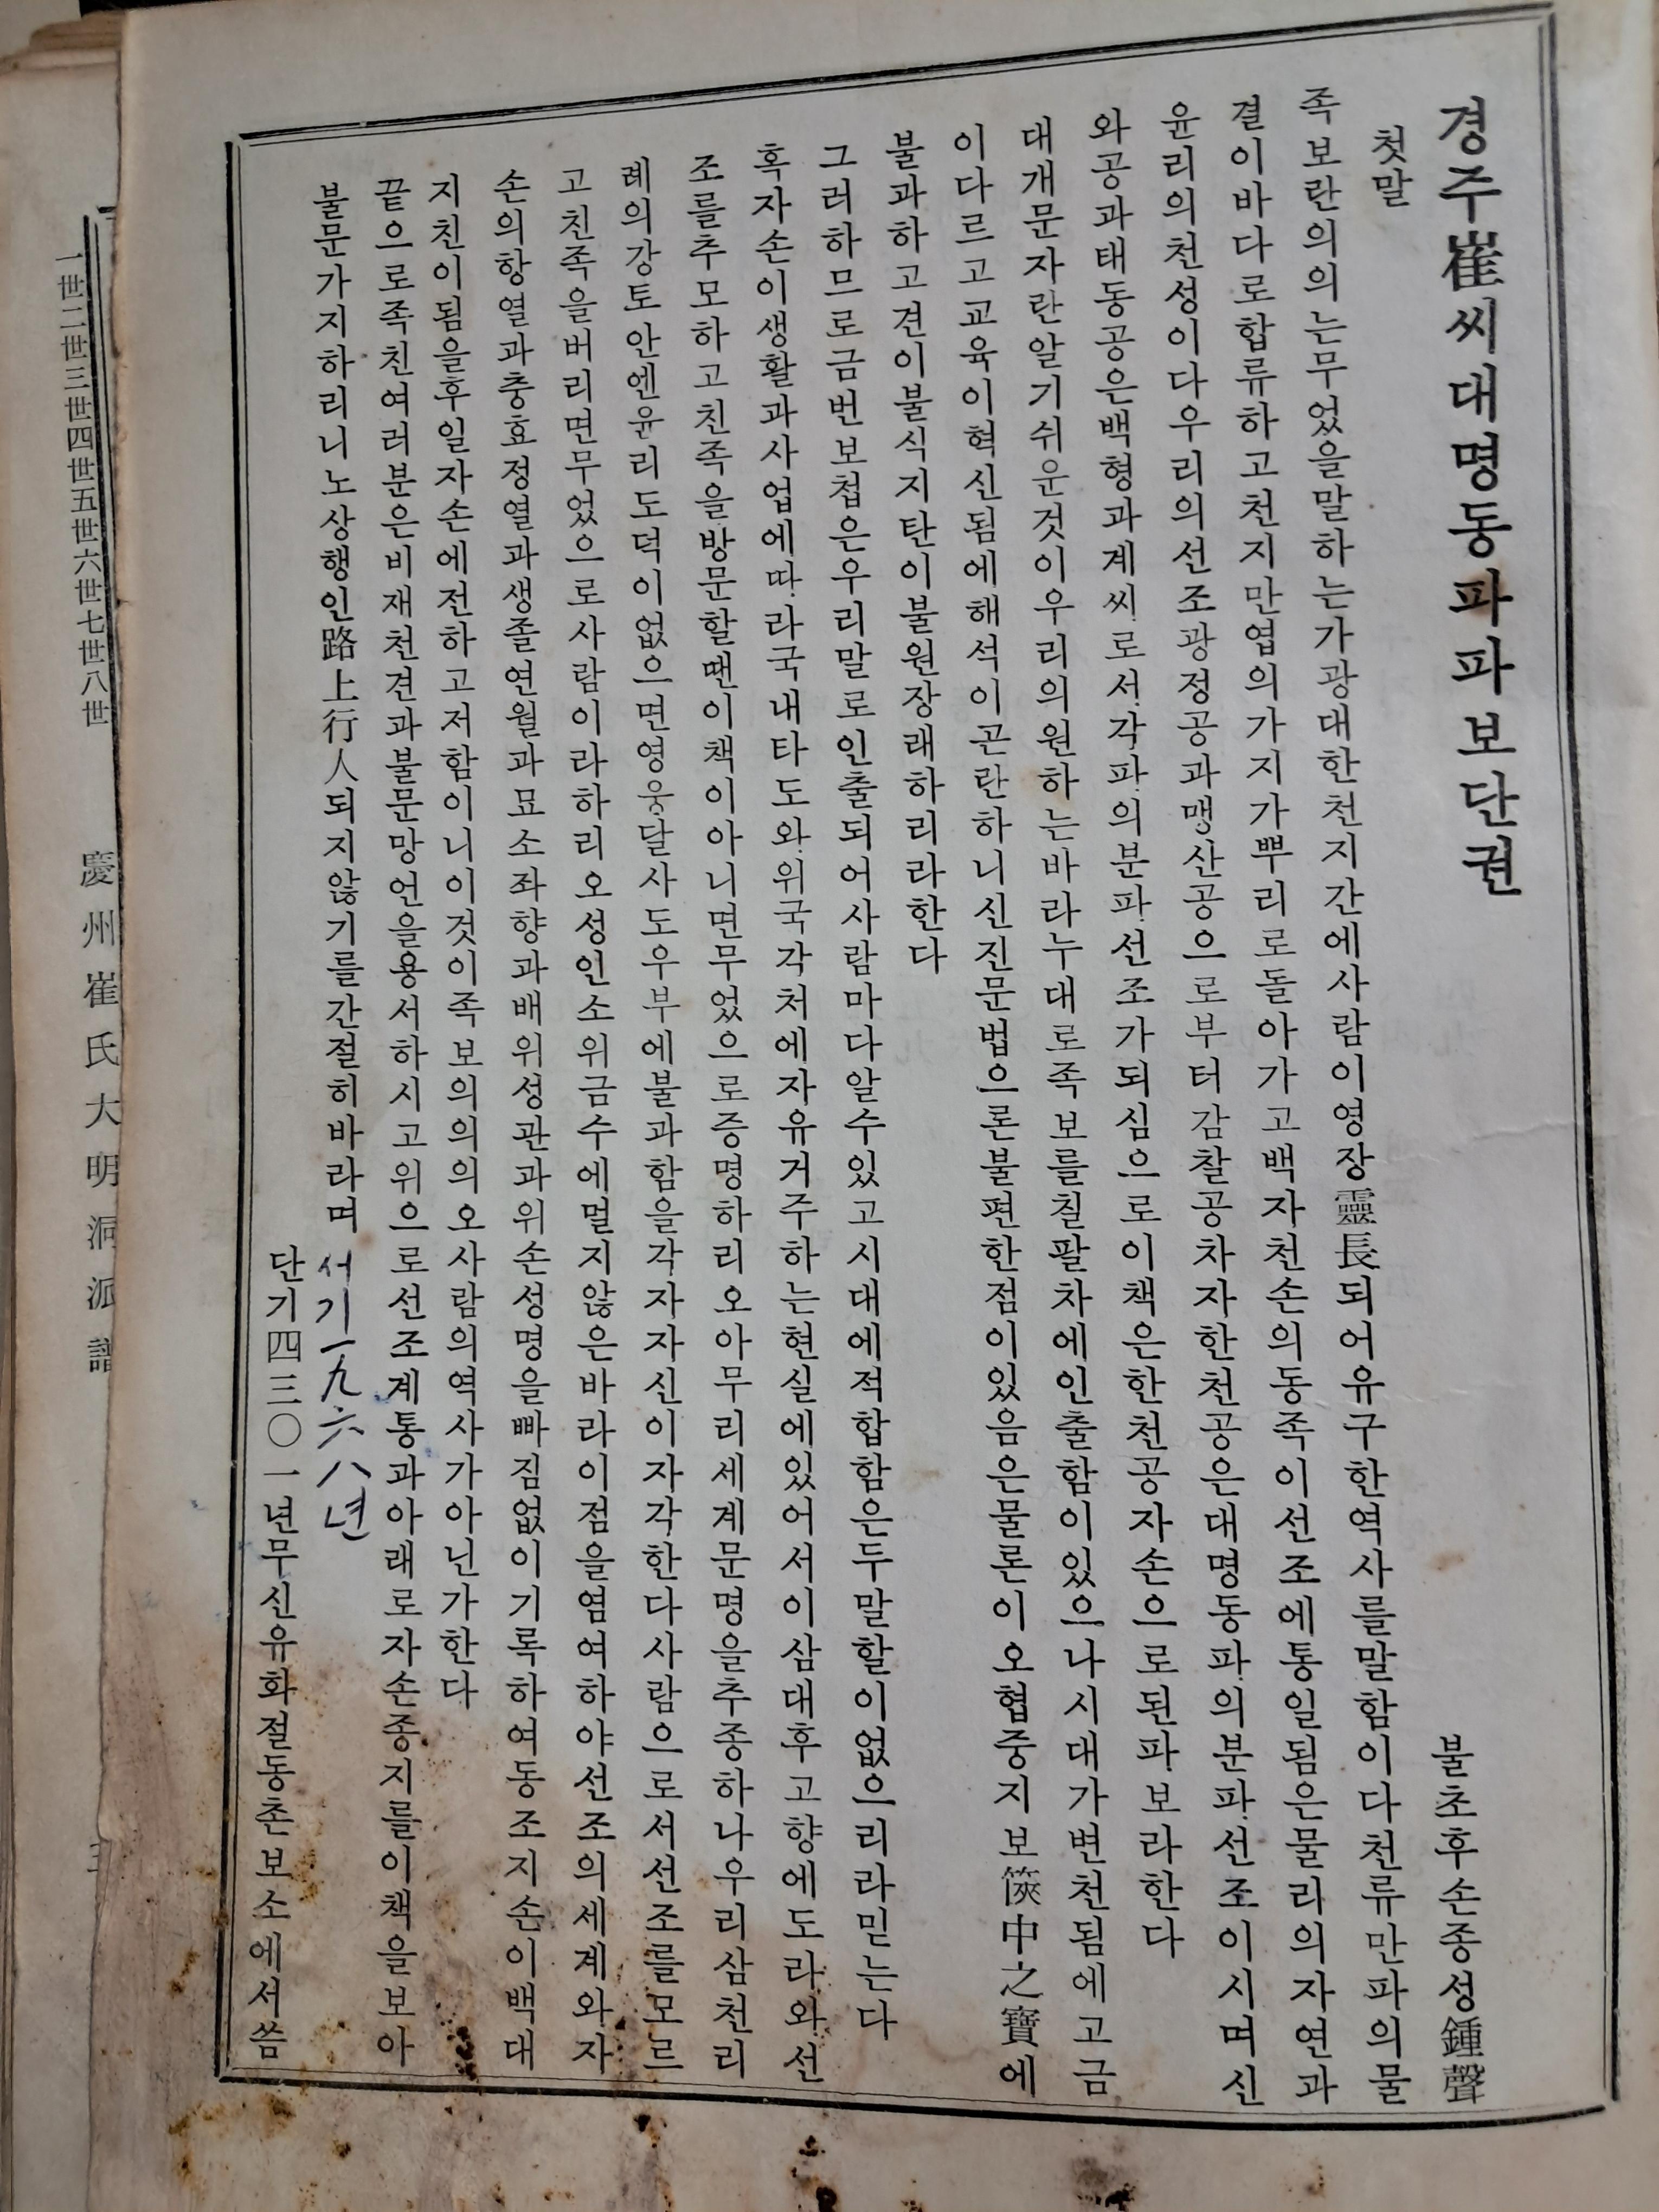 경주崔씨대명동파파보단권
첫말
불초후손종성鍾聲
족보란의의는무었을말하는가광대한천지간에사람이영장靈長되어유구한역사를말함이다천류만파의물
결이바다로합류하고천지만엽의가지가뿌리로돌아가고백자천손의동족이선조에통일됨은물리의자연과
윤리의천성이다우리의선조광정공과맹산공으로부터감찰공차자한천공은대명동파의분파선조이시며신
와공과태동공은백형과계씨로서각파의분파선조가되심으로이책은한천공자손으로된파보라한다
대개문자란알기쉬운것이우리의원하는바라누대로족보를칠팔차에인출함이있으나시대가변천됨에고금
이다르고교육이혁신됨에해석이곤란하니신진문법으론불편한점이있음은물론이오협중지보篋中之寶에
불과하고견이불식지탄이불원장래하리라한다
그러하므로금번보첩은우리말로인출되어사람마다알수있고시대에적합함은두말할이없으리라믿는다
혹자손이생활과사업에따라국내타도와위국각처에자유거주하는현실에있어서이삼대후고향에도라와선
조를추모하고친족을방문할땐이책이아니면무었으로증명하리오아무리세계문명을추종하나우리삼천리
례의강토안엔윤리도덕이없으면영웅달사도우부에불과함을각자자신이자각한다사람으로서선조를모르
고친족을버리면무었으로사람이라하리오성인소위금수에멀지않은바라이점을염여하야선조의세계와자
손의항열과충효정열과생졸연월과묘소좌향과배위성관과위손성명을빠짐없이기록하여동조지손이백대
지친이됨을후일자손에전하고저함이니이것이족보의의의오사람의역사가아닌가한다
끝으로족친여러분은비재천견과불문망언을용서하시고위으로선조계통과아래로자손종지를이책을보아
불문가지하리니노상행인路上行人되지않기를간절히바라며
서기一九六八년
단기四三〇一년무신유화절동촌보소에서씀
一世二世三世四世五世六世七世八世
慶州崔氏大明洞派譜